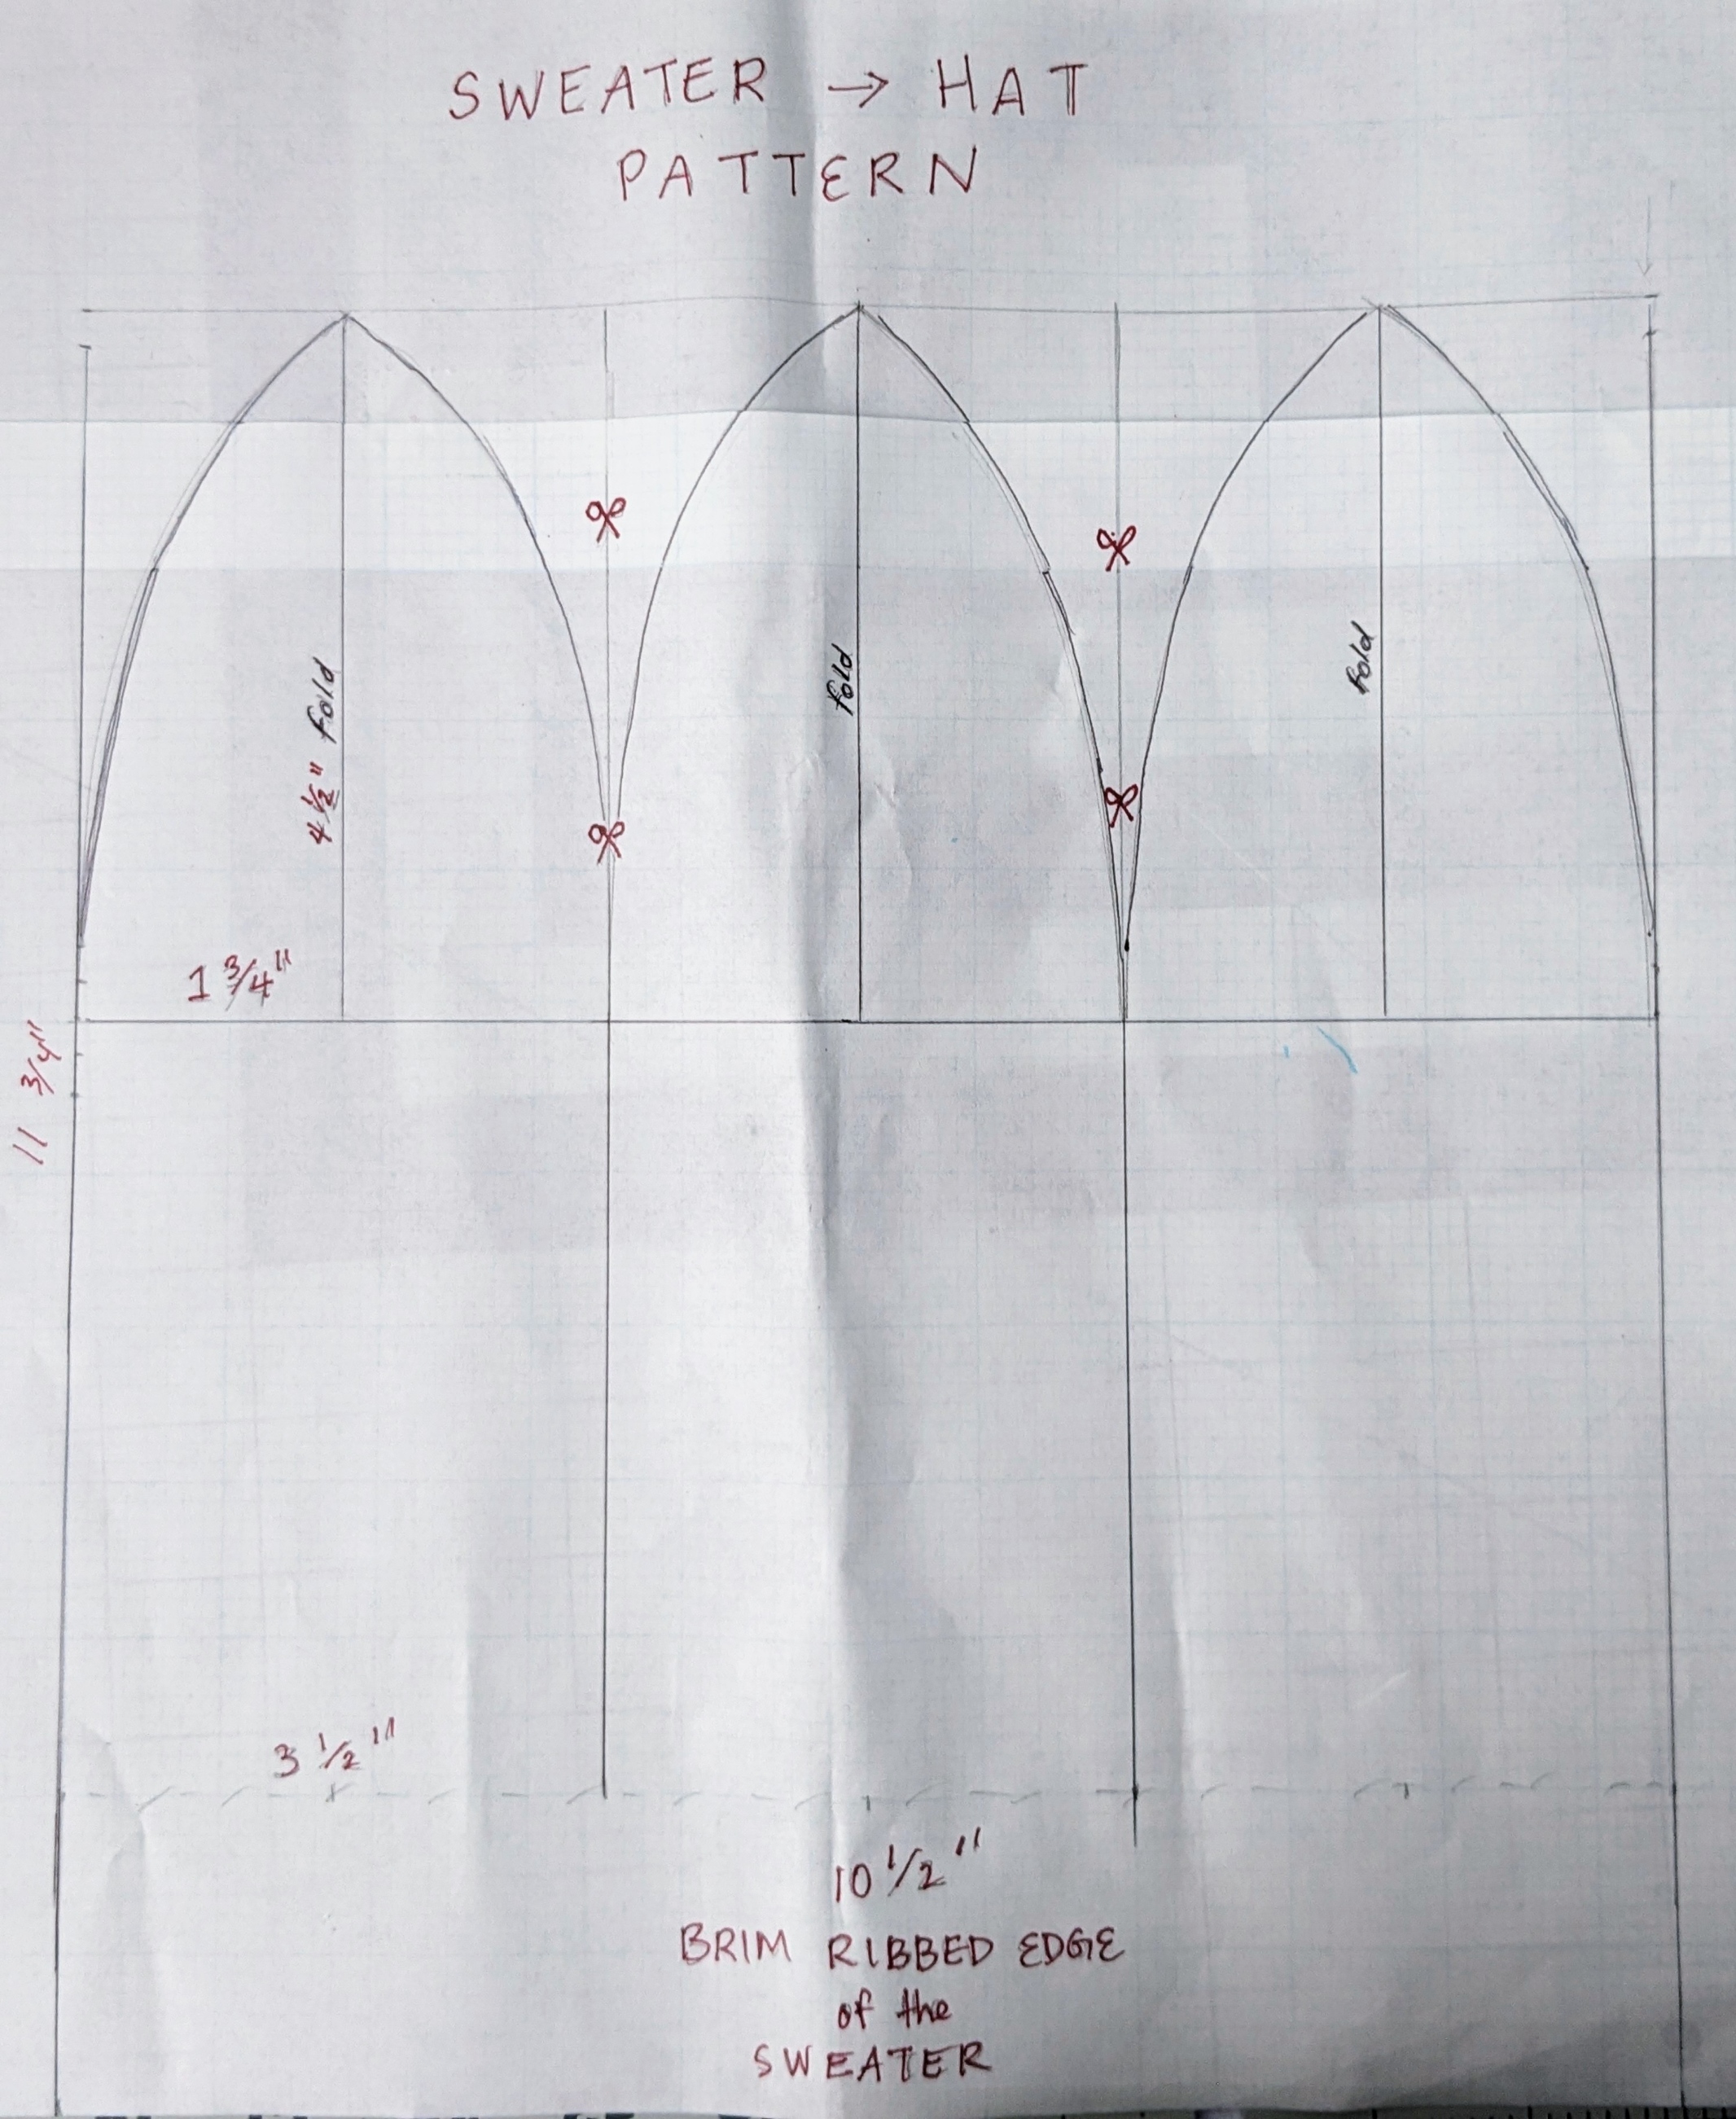 SWEATER → HAT
PATTERN
4 1/2" fold
fold
fold
1 3/4"
11 3/4"
3 1/2"
10 1/2"
BRIM RIBBED EDGE
of the
SWEATER